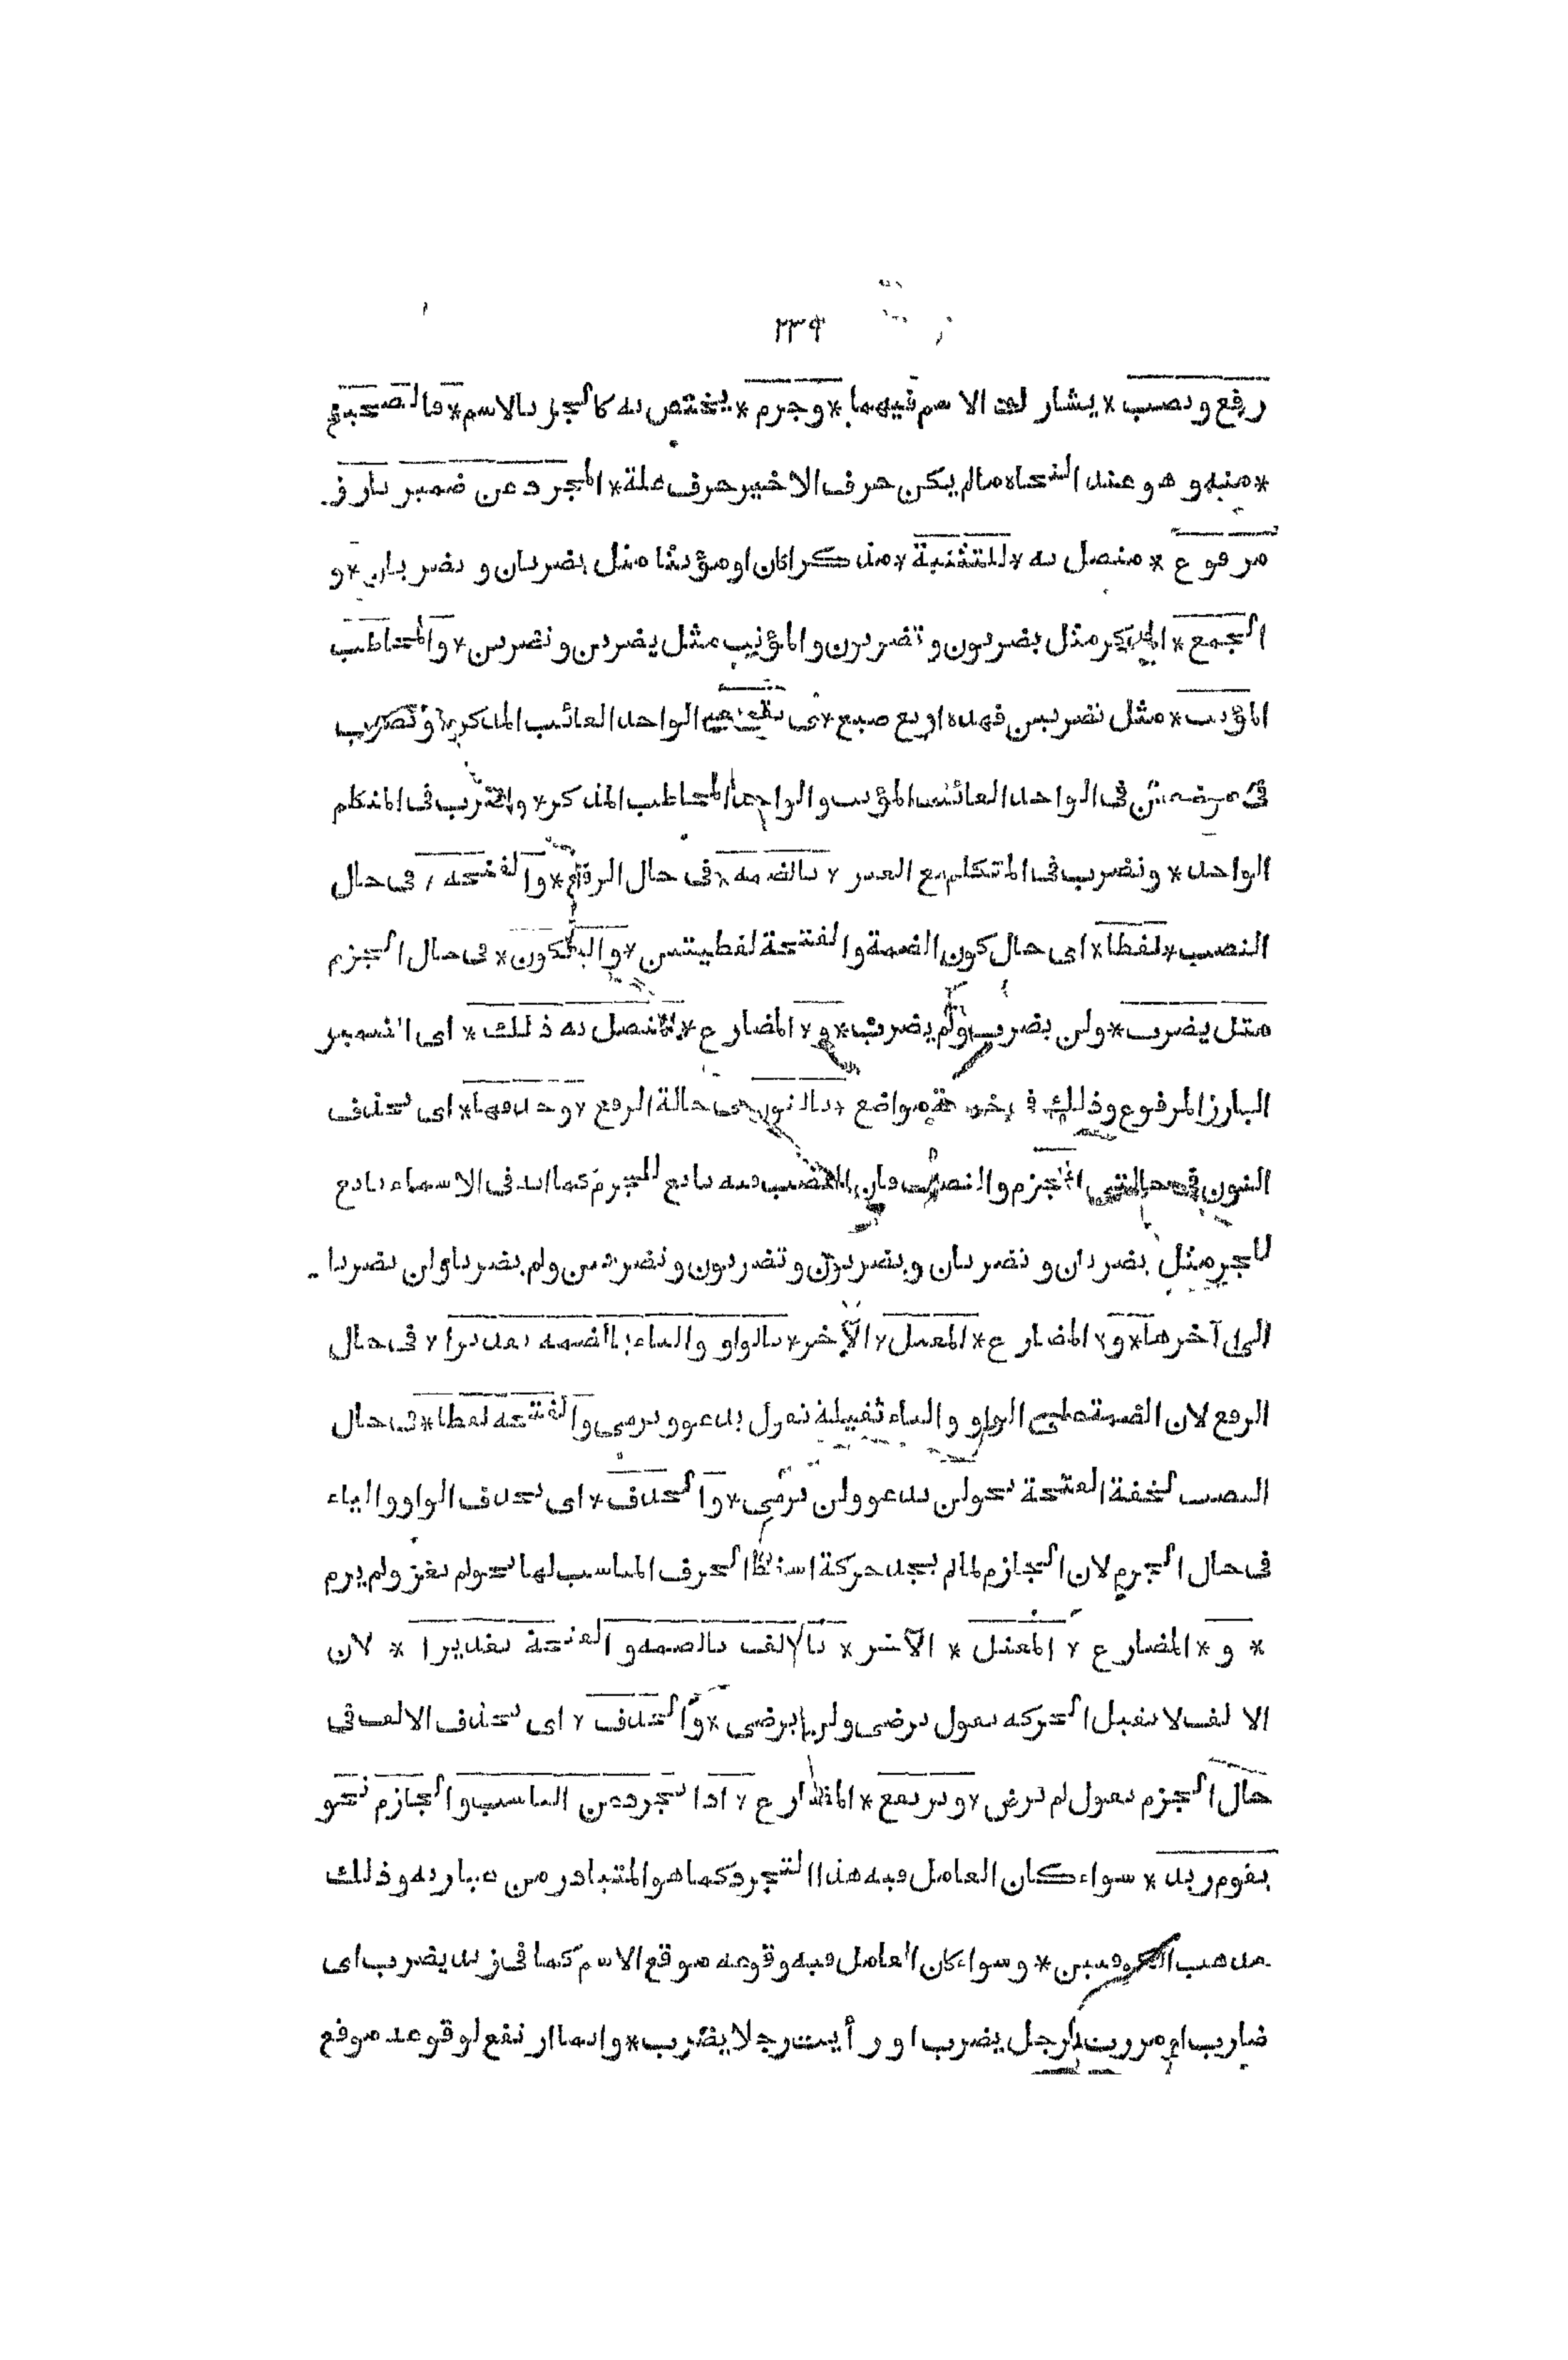 ٢٣٩
رفع ونصب * يشارك الاسم فيهما * وجزم * يختص به كالجر بالاسم * فالصحيح
* منه وهو عند النحاة مالم يكن حرف الاخير حرف علة * المجرد عن ضمير بارز
مرفوع * متصل به * للتثنية * مذكرا كان او مؤنثا مثل يضربان وتضربان * و
الجمع * المذكر مثل يضربون وتضربون والمؤنث مثل يضربن وتضربن * والمخاطب
المؤنث * مثل تضربين فهذه اربع صيغ * الواحد الغائب المذكر * وتضرب
فى موضعين فى الواحد الغائب المؤنث والواحد المخاطب المذكر * واضرب فى المتكلم
الواحد * ونضرب فى المتكلم مع الغير * بالضمة * فى حال الرفع * والفتحة * فى حال
النصب * لفظا * اى حال كون الضمة والفتحة لفظيتين * والسكون * فى حال الجزم
مثل يضرب * ولن يضرب ولم يضرب * و * المضارع * المتصل به ذلك * اى الضمير
البارز المرفوع وذلك فى خمسة مواضع * بالنون فى حالة الرفع * وحذفها * اى تحذف
النون فى حالتى الجزم والنصب فان النصب فيه تابع للجزم كما انه فى الاسماء تابع
للجر مثل يضربان وتضربان ويضربون وتضربون وتضربين ولم يضربا ولن يضربا
الى آخرها * و * المضارع * المعتل * الآخر * بالواو والياء بالضمة تقديرا * فى حال
الرفع لان الضمة على الواو والياء ثقيلة تقول يدعو ويرمى والفتحة لفظا * فى حال
النصب لخفة الفتحة نحو لن يدعو ولن يرمى * والحذف * اى تحذف الواو والياء
فى حال الجزم لان الجازم لما لم يجد حركة اسقط الحرف المناسب لها نحو لم يغز ولم يرم
* و * المضارع * المعتل * الآخر * بالالف بالضمة والفتحة تقديرا * لان
الالف لا تقبل الحركة تقول يرضى ولن يرضى * والحذف * اى تحذف الالف فى
حال الجزم تقول لم يرض * ويرتفع * المضارع * اذا تجرد عن الناصب والجازم نحو
يقوم زيد * سواء كان العامل فيه هذا التجرد كما هو المتبادر من عبارته وذلك
مذهب الكوفيين * وسواء كان العامل فيه وقوعه موقع الاسم كما فى زيد يضرب اى
ضارب او مررت برجل يضرب او رأيت رجلا يضرب * وانما ارتفع لوقوعه موقع